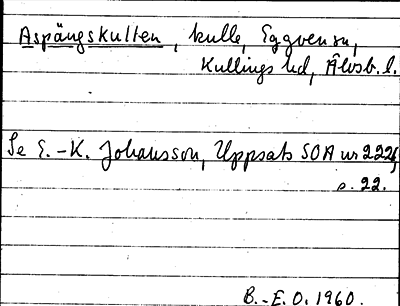 Aspängskullen, kulle, Eggvena sn,
Kullings hd, Älvsb. l.
Se E.-K. Johansson, Uppsats SOA nr 2226,
s. 22.
B.-E. O. 1960.